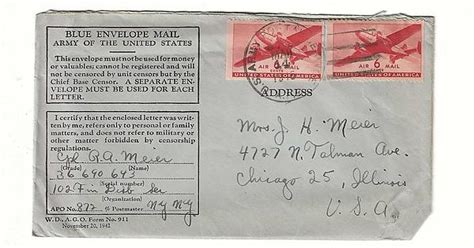 BLUE ENVELOPE MAIL
ARMY OF THE UNITED STATES
This envelope must not be used for money
or valuables; cannot be registered and will
not be censored by unit censors but by the
Chief Base Censor. A SEPARATE EN-
VELOPE MUST BE USED FOR EACH
LETTER.
I certify that the enclosed letter was written
by me, refers only to personal or family
matters, and does not refer to military or
other matter forbidden by censorship
regulations.
Cpl R.A. Meier
(Grade) (Name)
36 640 643
(Serial number)
102 Fin Disb Sec
(Organization)
APO No. 872 % Postmaster NY NY
W.D., A.G.O. Form No. 911
November 20, 1942
U.S. ARMY
14
AIR MAIL
6¢
UNITED STATES OF AMERICA
AIR MAIL
6¢
UNITED STATES OF AMERICA
ADDRESS
Mrs. J. H. Meier
4727 N. Talman Ave.
Chicago 25, Illinois
U. S. A.